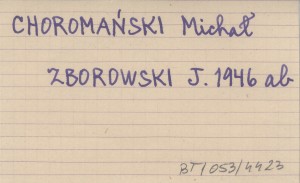 CHOROMAŃSKI Michał
ZBOROWSKI J. 1946 ab
BT/053/4423